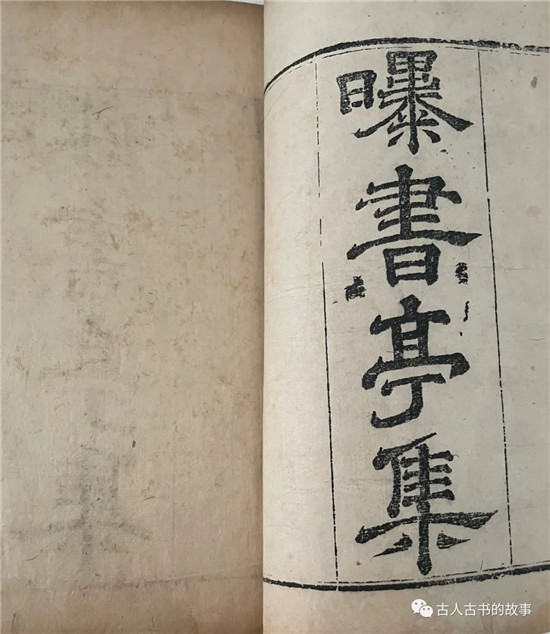 曝書亭集
古人古书的故事